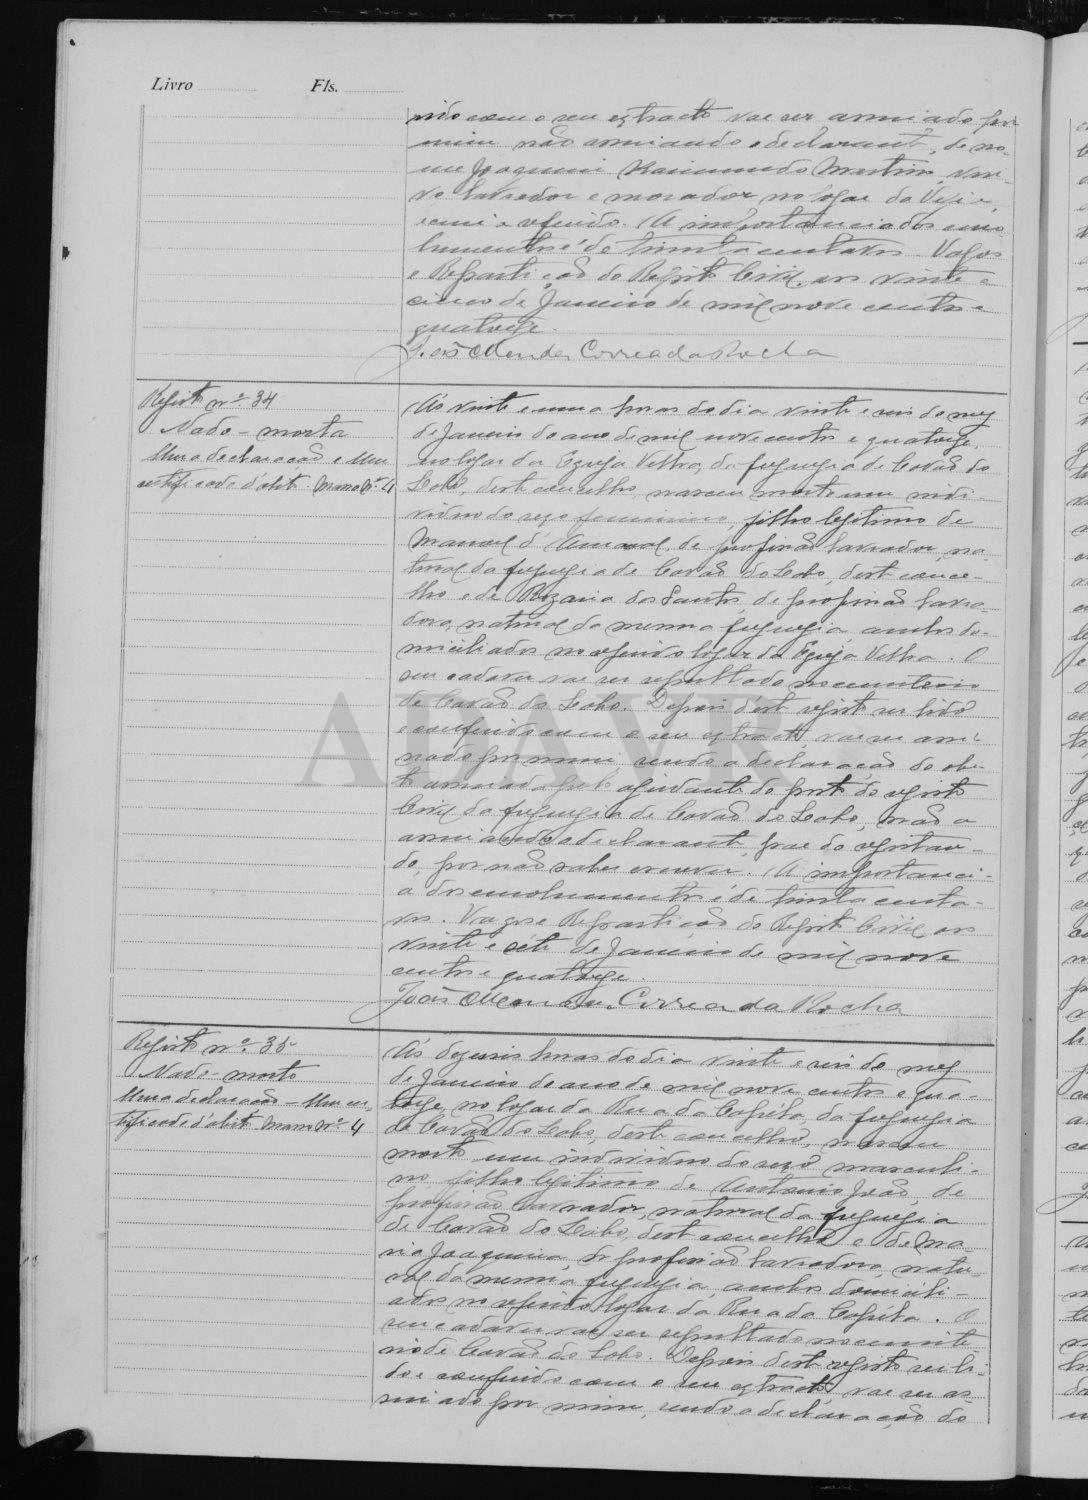 Livro Fls.
nido com o seu extracto vae ser assinado por
mim não assinando o declarante, de no-
me Joaquim Raimundo Martins, viu-
vo lavrador e morador no logar da
acima referido. A importancia dos emo-
lumentos é de trinta centavos. Vagos
e Repartição do Registo Civil, aos vinte e
cinco de Janeiro de mil nove centos e
quatorze.
João Mendes Correa da Rocha
Registo nº 34
Nado-morta
Uma declaração e um
certificado d'obito. Maço Nº 4
Ás vinte e uma horas do dia vinte e seis do mez
de Janeiro do ano de mil nove centos e quatorze,
no logar da Egreja Velha, da freguezia de Covão do
Lobo, deste concelho, nasceu morto um indi-
viduo do sexo feminino, filho legitimo de
Manoel d'Amaral, de profissão lavrador, na-
tural da freguezia de Covão do Lobo, deste conce-
lho e de Rozaria dos Santos, de profissão lavra-
dora, natural da mesma freguezia, ambos do-
miciliados no referido logar da Egreja Velha. O
seu cadaver vae ser sepultado no cemiterio
de Covão do Lobo. Depois d'este registo ser lido
e conferido com o seu extracto, vae ser assi-
nado por mim, sendo a declaração do obi-
to assinada pelo ajudante do posto do registo
Civil da freguezia de Covão do Lobo, não a
assinando o declarante, pae do registan-
do, por não saber escrever. A importanci-
a dos emolumentos é de trinta centa-
vos. Vagos e Repartição do Registo Civil, aos
vinte e sete de Janeiro de mil nove
centos e quatorze.
João Mendes Correa da Rocha
Registo nº 35
Nado-morto
Uma declaração - Um cer-
tificado d'obito. Maço Nº 4
Ás dezeseis horas do dia vinte e seis do mez
de Janeiro do ano de mil nove centos e qua-
torze, no logar da Rua da Capéla, da freguezia
de Covão do Lobo, deste concelho, nasceu
morto um individuo do sexo masculi-
no filho legitimo de Antonio João, de
profissão lavrador, natural da freguezia
de Covão do Lobo, deste concelho e de Ma-
ria Joaquina, de profissão lavradora, natu-
ral da mesma freguezia, ambos domicili-
ados no referido logar da Rua da Capéla. O
seu cadaver vae ser sepultado no cemite-
rio de Covão do Lobo. Depois deste registo ser li-
do e conferido com o seu extracto, vae ser as-
sinado por mim, sendo a declaração do
ADAVR